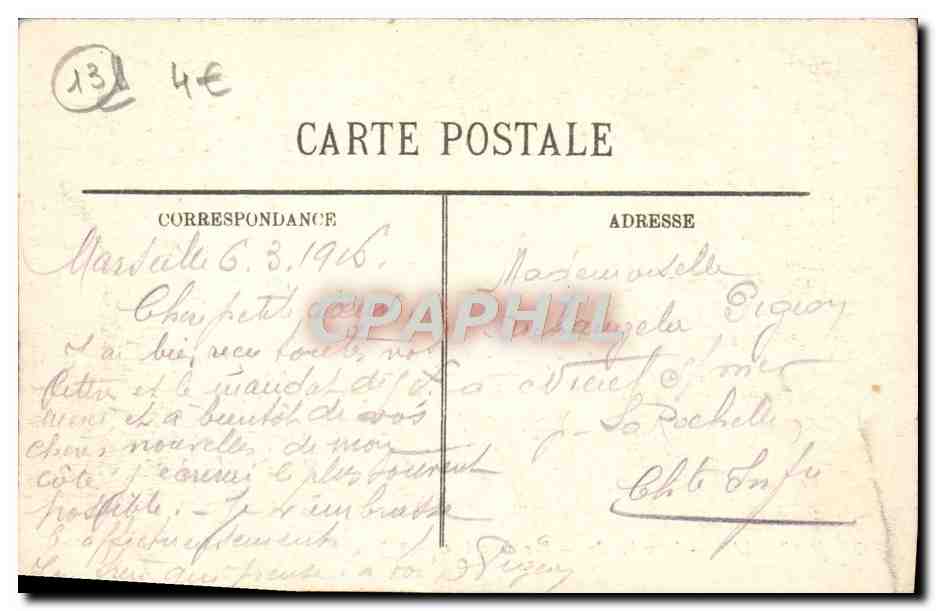 13
4€
CARTE POSTALE
CORRESPONDANCE
Marseille 6.3.1916.
Chère petite
J'ai bien reçu toutes vos
lettre et le mandat
merci et à bientôt de vos
chères nouvelles de mon
côté j'écrirai le plus souvent
possible. - Je t'embrasse
affectueusement
qui pense à toi Pigeon
ADRESSE
Mademoiselle
Pigeon
à Nieul s/ mer
La Rochelle
Chte Infre
CPAPHIL